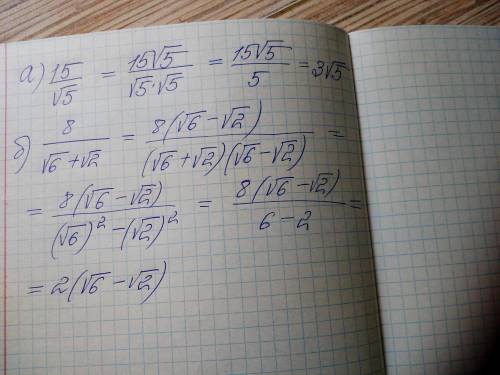 а) 15/√5 = 15√5/√5·√5 = 15√5/5 = 3√5
б) 8/√6+√2 = 8(√6-√2)/(√6+√2)(√6-√2) =
= 8(√6-√2)/(√6)²-(√2)² = 8(√6-√2)/6-2 =
= 2(√6-√2)